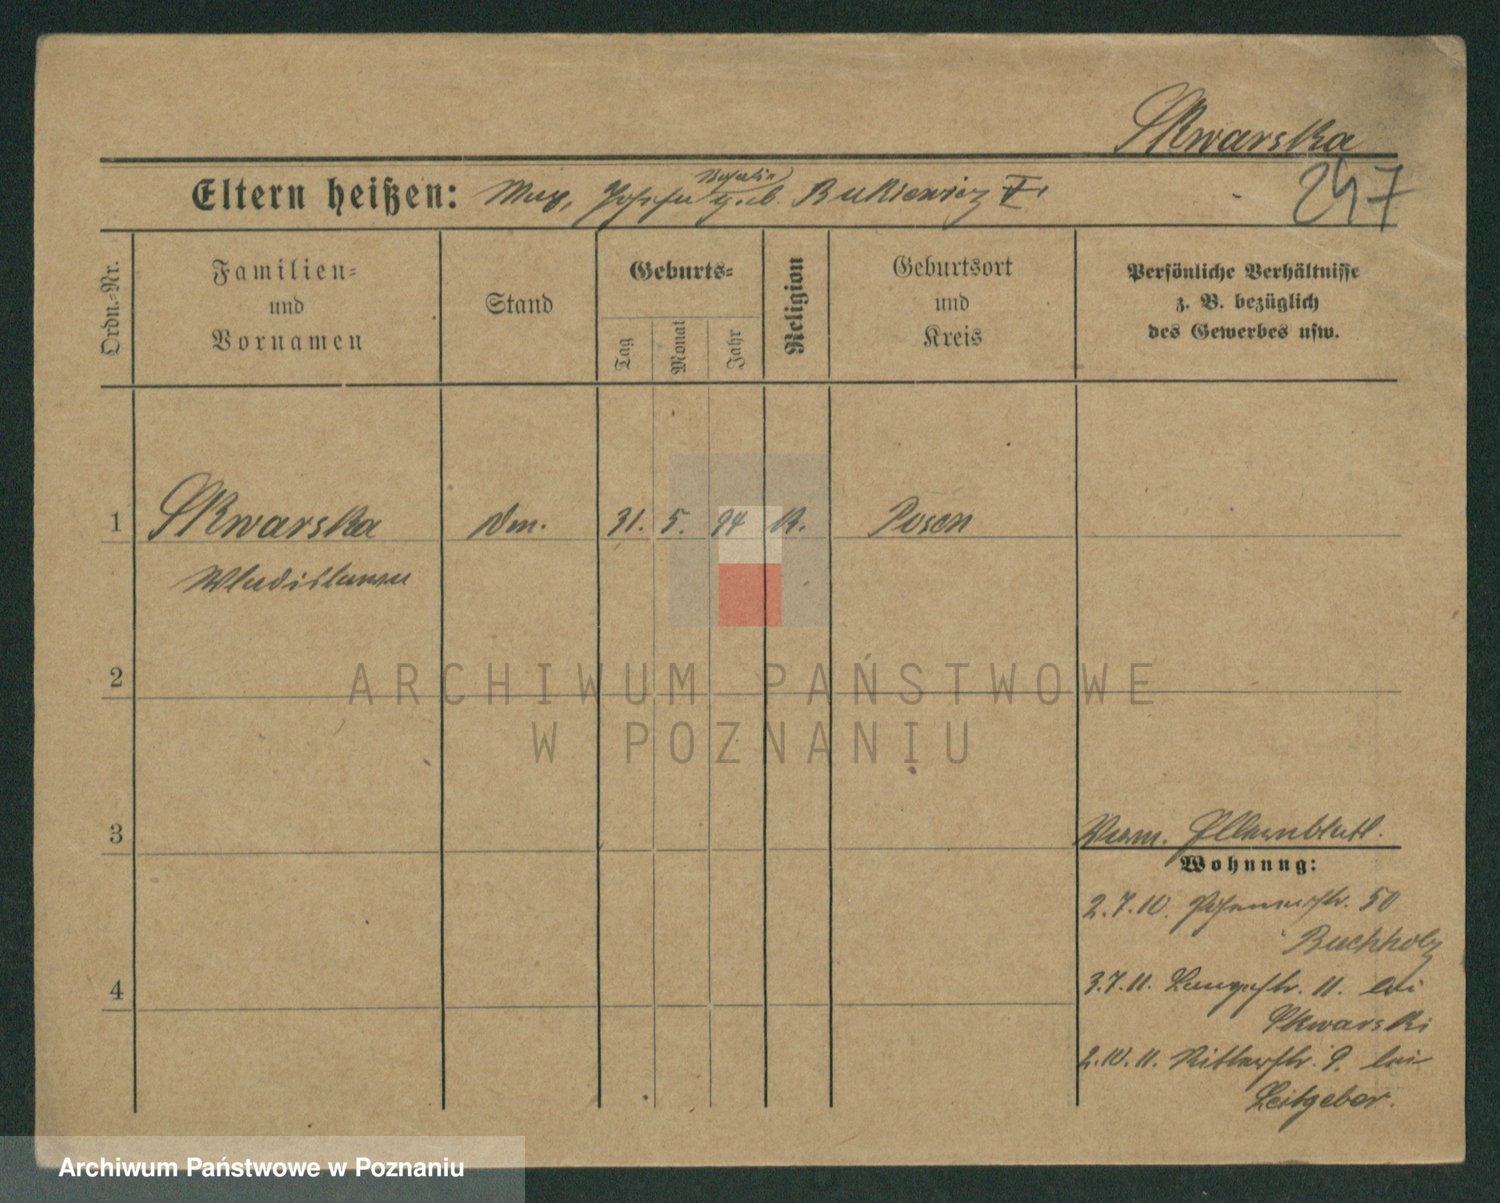 Skwarska
Eltern heißen: Max, geb. Bukiewicz
Rosalie
247
Ordn.-Nr.
Familien-
und
Vornamen
Stand
Geburts-
Tag
Monat
Jahr
Religion
Geburtsort
und
Kreis
Persönliche Verhältnisse
z. B. bezüglich
des Gewerbes usw.
1 Skwarska 31. 5. 94 K. Posen
Wladislawa
2
ARCHIWUM PAŃSTWOWE
W POZNANIU
3
Verm. Elternblatt.
Wohnung:
2.7.10. 50
Buchholz
4
3.7.11. Langestr. 11. bei
Skwarski
2.10.11. Ritterstr. 9. bei
Leitgeber.
Archiwum Państwowe w Poznaniu